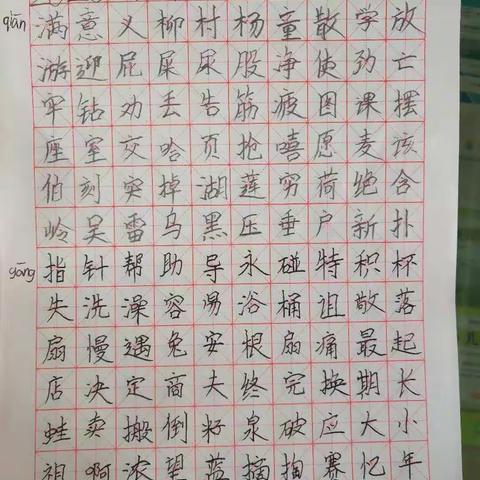 qiān 满意义柳村杨童散学放
游迎屁屎尿股净使劲亡
牢钻劝丢告筋疲图课摆
座室交哈页抢嘻愿麦该
伯刻突掉湖莲穷荷绝含
岭吴雷乌黑压垂户新扑
gōng 指针帮助导永碰特积杯
失洗澡容易浴桶诅散落
扇慢遇兔安根扇痛最起
店决定商夫终完换期长
蛙卖搬倒籽泉破应大小
祖啊浓望蓝摘掏赛忆年